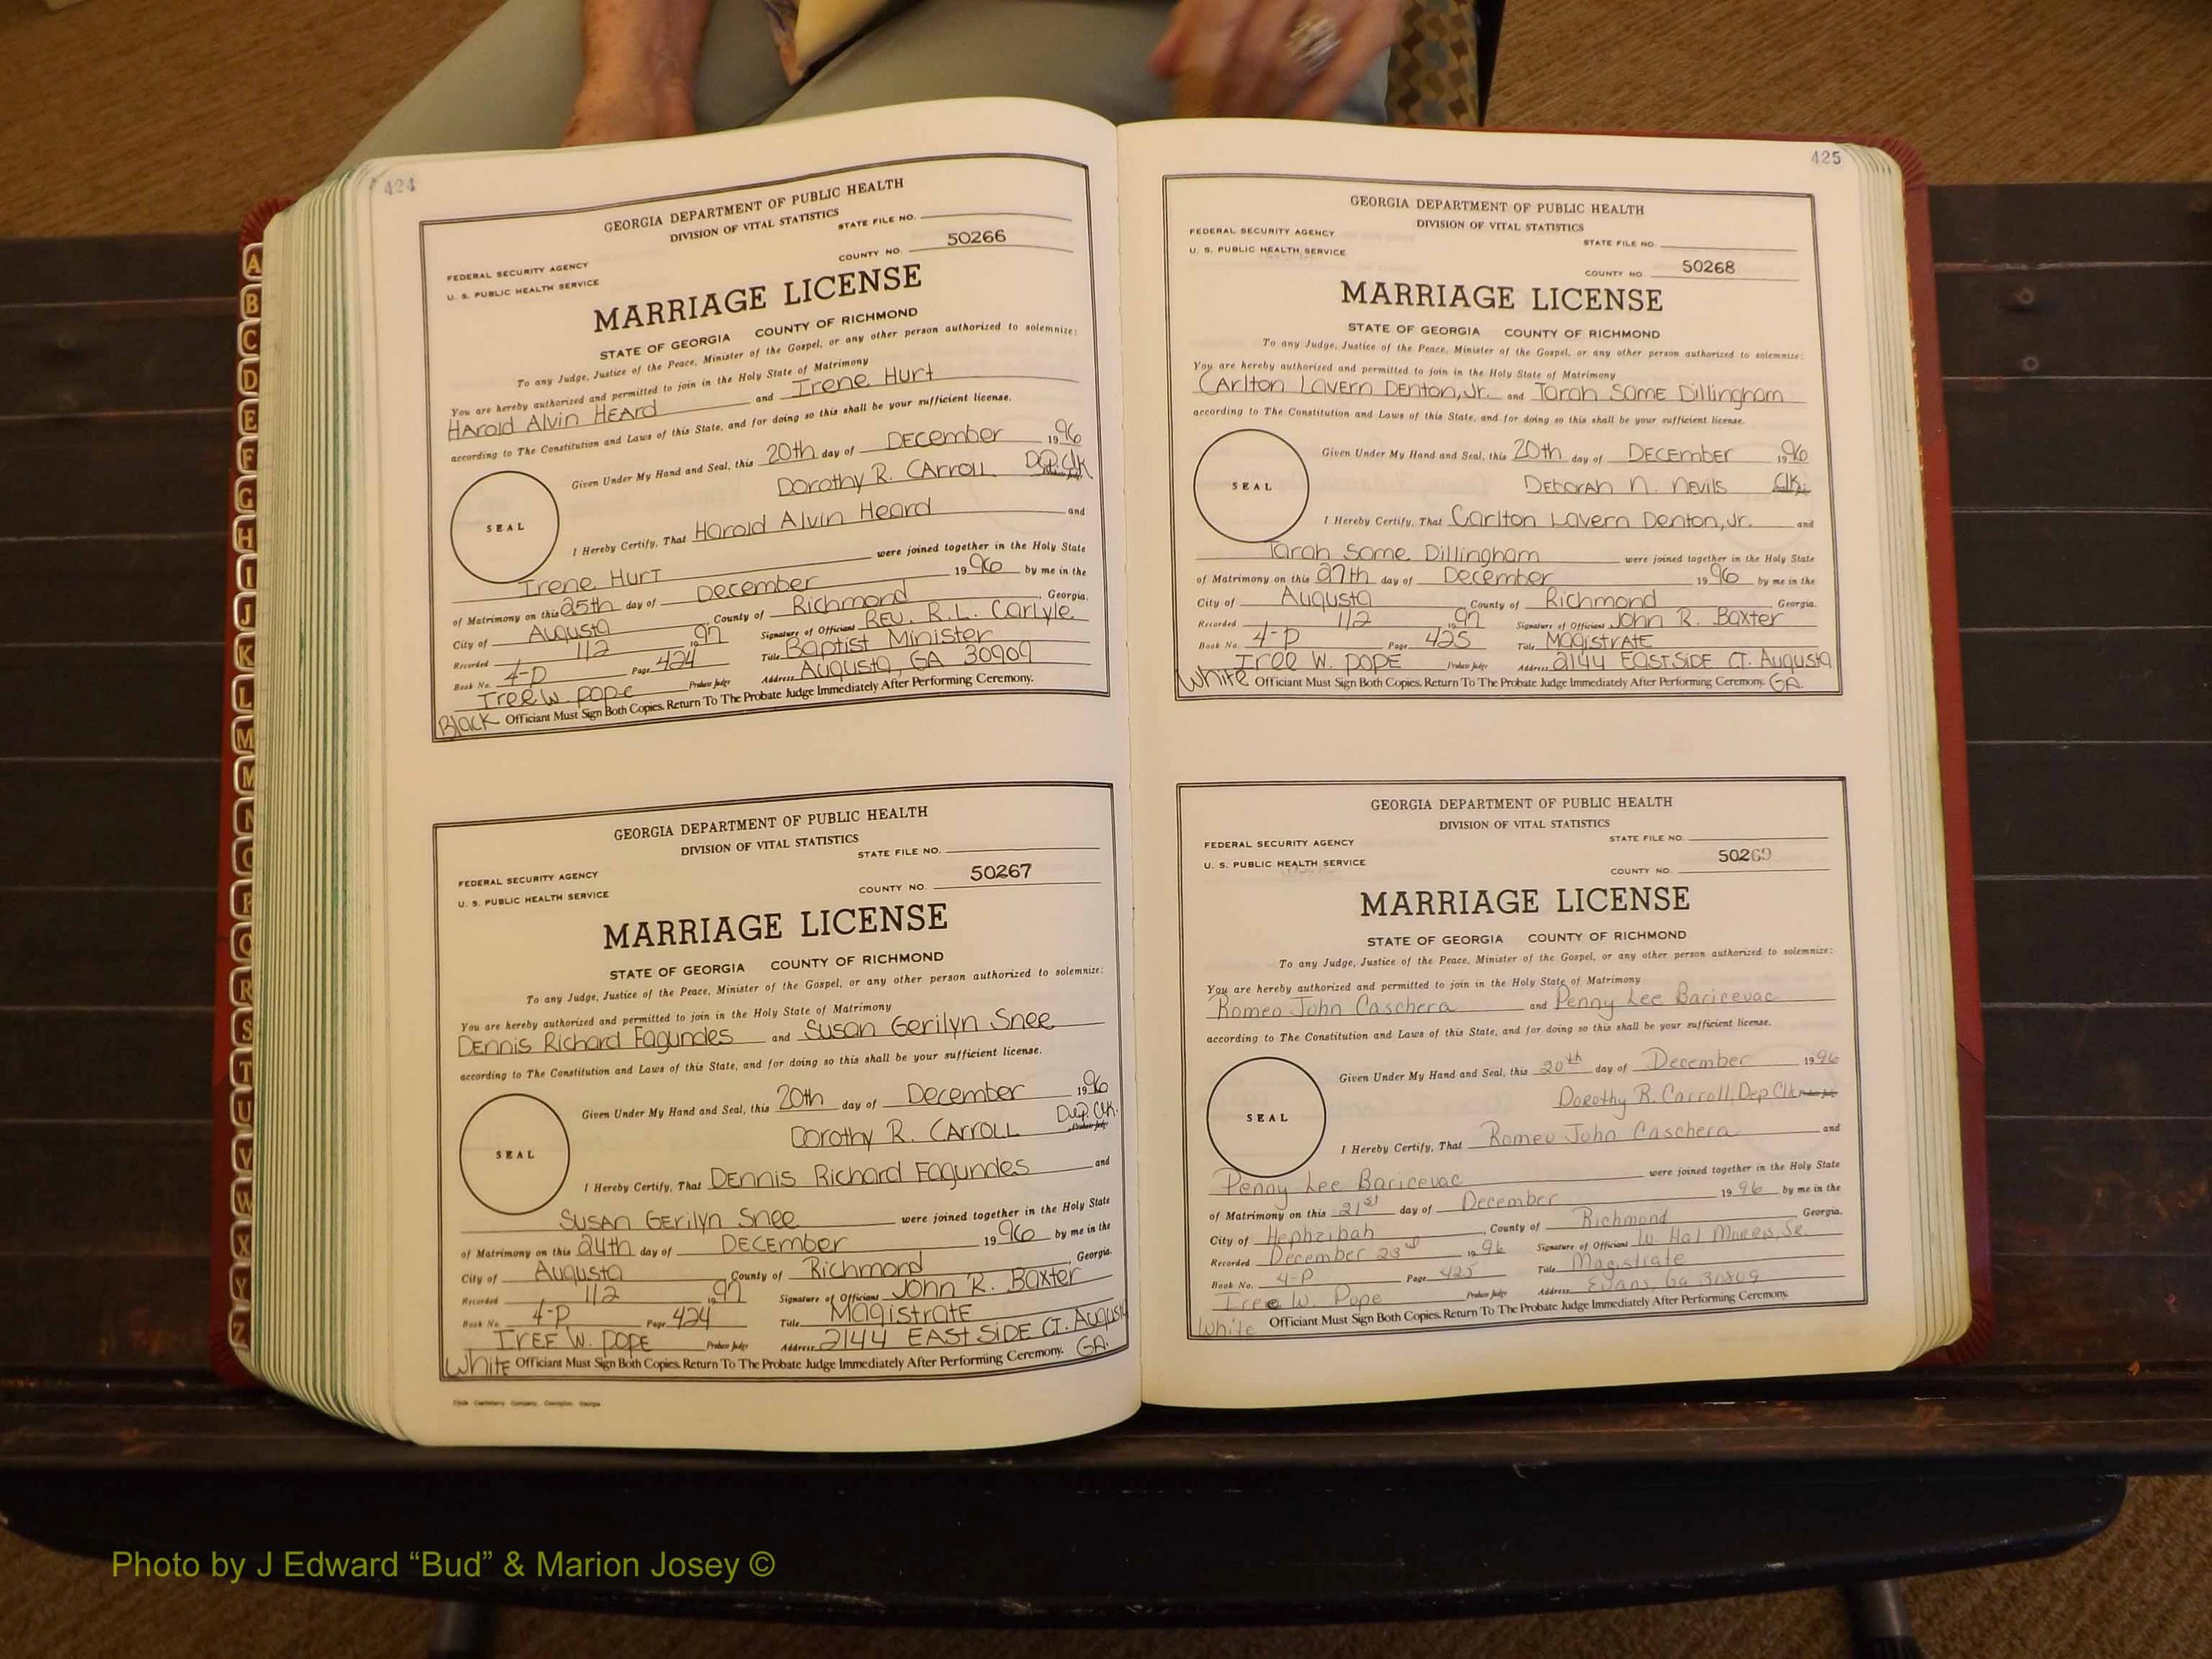 424
GEORGIA DEPARTMENT OF PUBLIC HEALTH
DIVISION OF VITAL STATISTICS
STATE FILE NO.
COUNTY NO. 50266
FEDERAL SECURITY AGENCY
U. S. PUBLIC HEALTH SERVICE
MARRIAGE LICENSE
STATE OF GEORGIA COUNTY OF RICHMOND
To any Judge, Justice of the Peace, Minister of the Gospel, or any other person authorized to solemnize:
You are hereby authorized and permitted to join in the Holy State of Matrimony
Harold Alvin Heard and Irene Hurt
according to The Constitution and Laws of this State, and for doing so this shall be your sufficient license.
Given Under My Hand and Seal, this 20th day of December 1996
Dorothy R. Carroll Dep. Clk
SEAL
I Hereby Certify, That Harold Alvin Heard and
Irene Hurt were joined together in the Holy State
of Matrimony on this 25th day of December 1996 by me in the
City of Augusta County of Richmond, Georgia.
Recorded 1/2 1997 Signature of Officiant Rev. R.L. Carlyle
Book No. 4-P Page 424 Title Baptist Minister
Tree W. Pope Probate Judge Address Augusta, GA 30909
Black Officiant Must Sign Both Copies. Return To The Probate Judge Immediately After Performing Ceremony.
GEORGIA DEPARTMENT OF PUBLIC HEALTH
DIVISION OF VITAL STATISTICS
STATE FILE NO.
COUNTY NO. 50267
FEDERAL SECURITY AGENCY
U. S. PUBLIC HEALTH SERVICE
MARRIAGE LICENSE
STATE OF GEORGIA COUNTY OF RICHMOND
To any Judge, Justice of the Peace, Minister of the Gospel, or any other person authorized to solemnize:
You are hereby authorized and permitted to join in the Holy State of Matrimony
Dennis Richard Fagundes and Susan Gerilyn Snee
according to The Constitution and Laws of this State, and for doing so this shall be your sufficient license.
Given Under My Hand and Seal, this 20th day of December 1996
Dorothy R. Carroll Dep. Clk.
Probate Judge
SEAL
I Hereby Certify, That Dennis Richard Fagundes and
Susan Gerilyn Snee were joined together in the Holy State
of Matrimony on this 24th day of December 1996 by me in the
City of Augusta County of Richmond, Georgia.
Recorded 1/2 1997 Signature of Officiant John R. Baxter
Book No. 4-P Page 424 Title Magistrate
Tree W. Pope Probate Judge Address 2144 East Side Ct. Augusta
White Officiant Must Sign Both Copies. Return To The Probate Judge Immediately After Performing Ceremony. GA.
425
GEORGIA DEPARTMENT OF PUBLIC HEALTH
DIVISION OF VITAL STATISTICS
FEDERAL SECURITY AGENCY
STATE FILE NO.
U. S. PUBLIC HEALTH SERVICE
COUNTY NO. 50268
MARRIAGE LICENSE
STATE OF GEORGIA COUNTY OF RICHMOND
To any Judge, Justice of the Peace, Minister of the Gospel, or any other person authorized to solemnize:
You are hereby authorized and permitted to join in the Holy State of Matrimony
Carlton Lavern Denton, Jr. and Tarah Same Dillingham
according to The Constitution and Laws of this State, and for doing so this shall be your sufficient license.
Given Under My Hand and Seal, this 20th day of December 1996
Deborah N. Nevils Clk.
SEAL
I Hereby Certify, That Carlton Lavern Denton, Jr. and
Tarah Same Dillingham were joined together in the Holy State
of Matrimony on this 27th day of December 1996 by me in the
City of Augusta County of Richmond, Georgia.
Recorded 1/2 1997 Signature of Officiant John R. Baxter
Book No. 4-P Page 425 Title Magistrate
Tree W. Pope Probate Judge Address 2144 East Side Ct. Augusta
White Officiant Must Sign Both Copies. Return To The Probate Judge Immediately After Performing Ceremony. GA.
GEORGIA DEPARTMENT OF PUBLIC HEALTH
DIVISION OF VITAL STATISTICS
FEDERAL SECURITY AGENCY
STATE FILE NO.
U. S. PUBLIC HEALTH SERVICE
COUNTY NO. 50269
MARRIAGE LICENSE
STATE OF GEORGIA COUNTY OF RICHMOND
To any Judge, Justice of the Peace, Minister of the Gospel, or any other person authorized to solemnize:
You are hereby authorized and permitted to join in the Holy State of Matrimony
Romeo John Caschera and Penny Lee Baricevac
according to The Constitution and Laws of this State, and for doing so this shall be your sufficient license.
Given Under My Hand and Seal, this 20th day of December 1996
Dorothy R. Carroll, Dep Clk Probate Judge
SEAL
I Hereby Certify, That Romeo John Caschera and
Penny Lee Baricevac were joined together in the Holy State
of Matrimony on this 21st day of December 1996 by me in the
City of Hephzibah, County of Richmond, Georgia.
Recorded December 23rd 1996 Signature of Officiant W Hal Morris, Sr.
Book No. 4-P Page 425 Title Magistrate
Tree W. Pope Probate Judge Address Evans, Ga 30809
White Officiant Must Sign Both Copies. Return To The Probate Judge Immediately After Performing Ceremony.
A
B
C
D
E
F
G
H
I
J
K
L
M
M
N
O
P
Q
R
S
T
U
V
W
X
Y
Z
Photo by J Edward “Bud” & Marion Josey ©